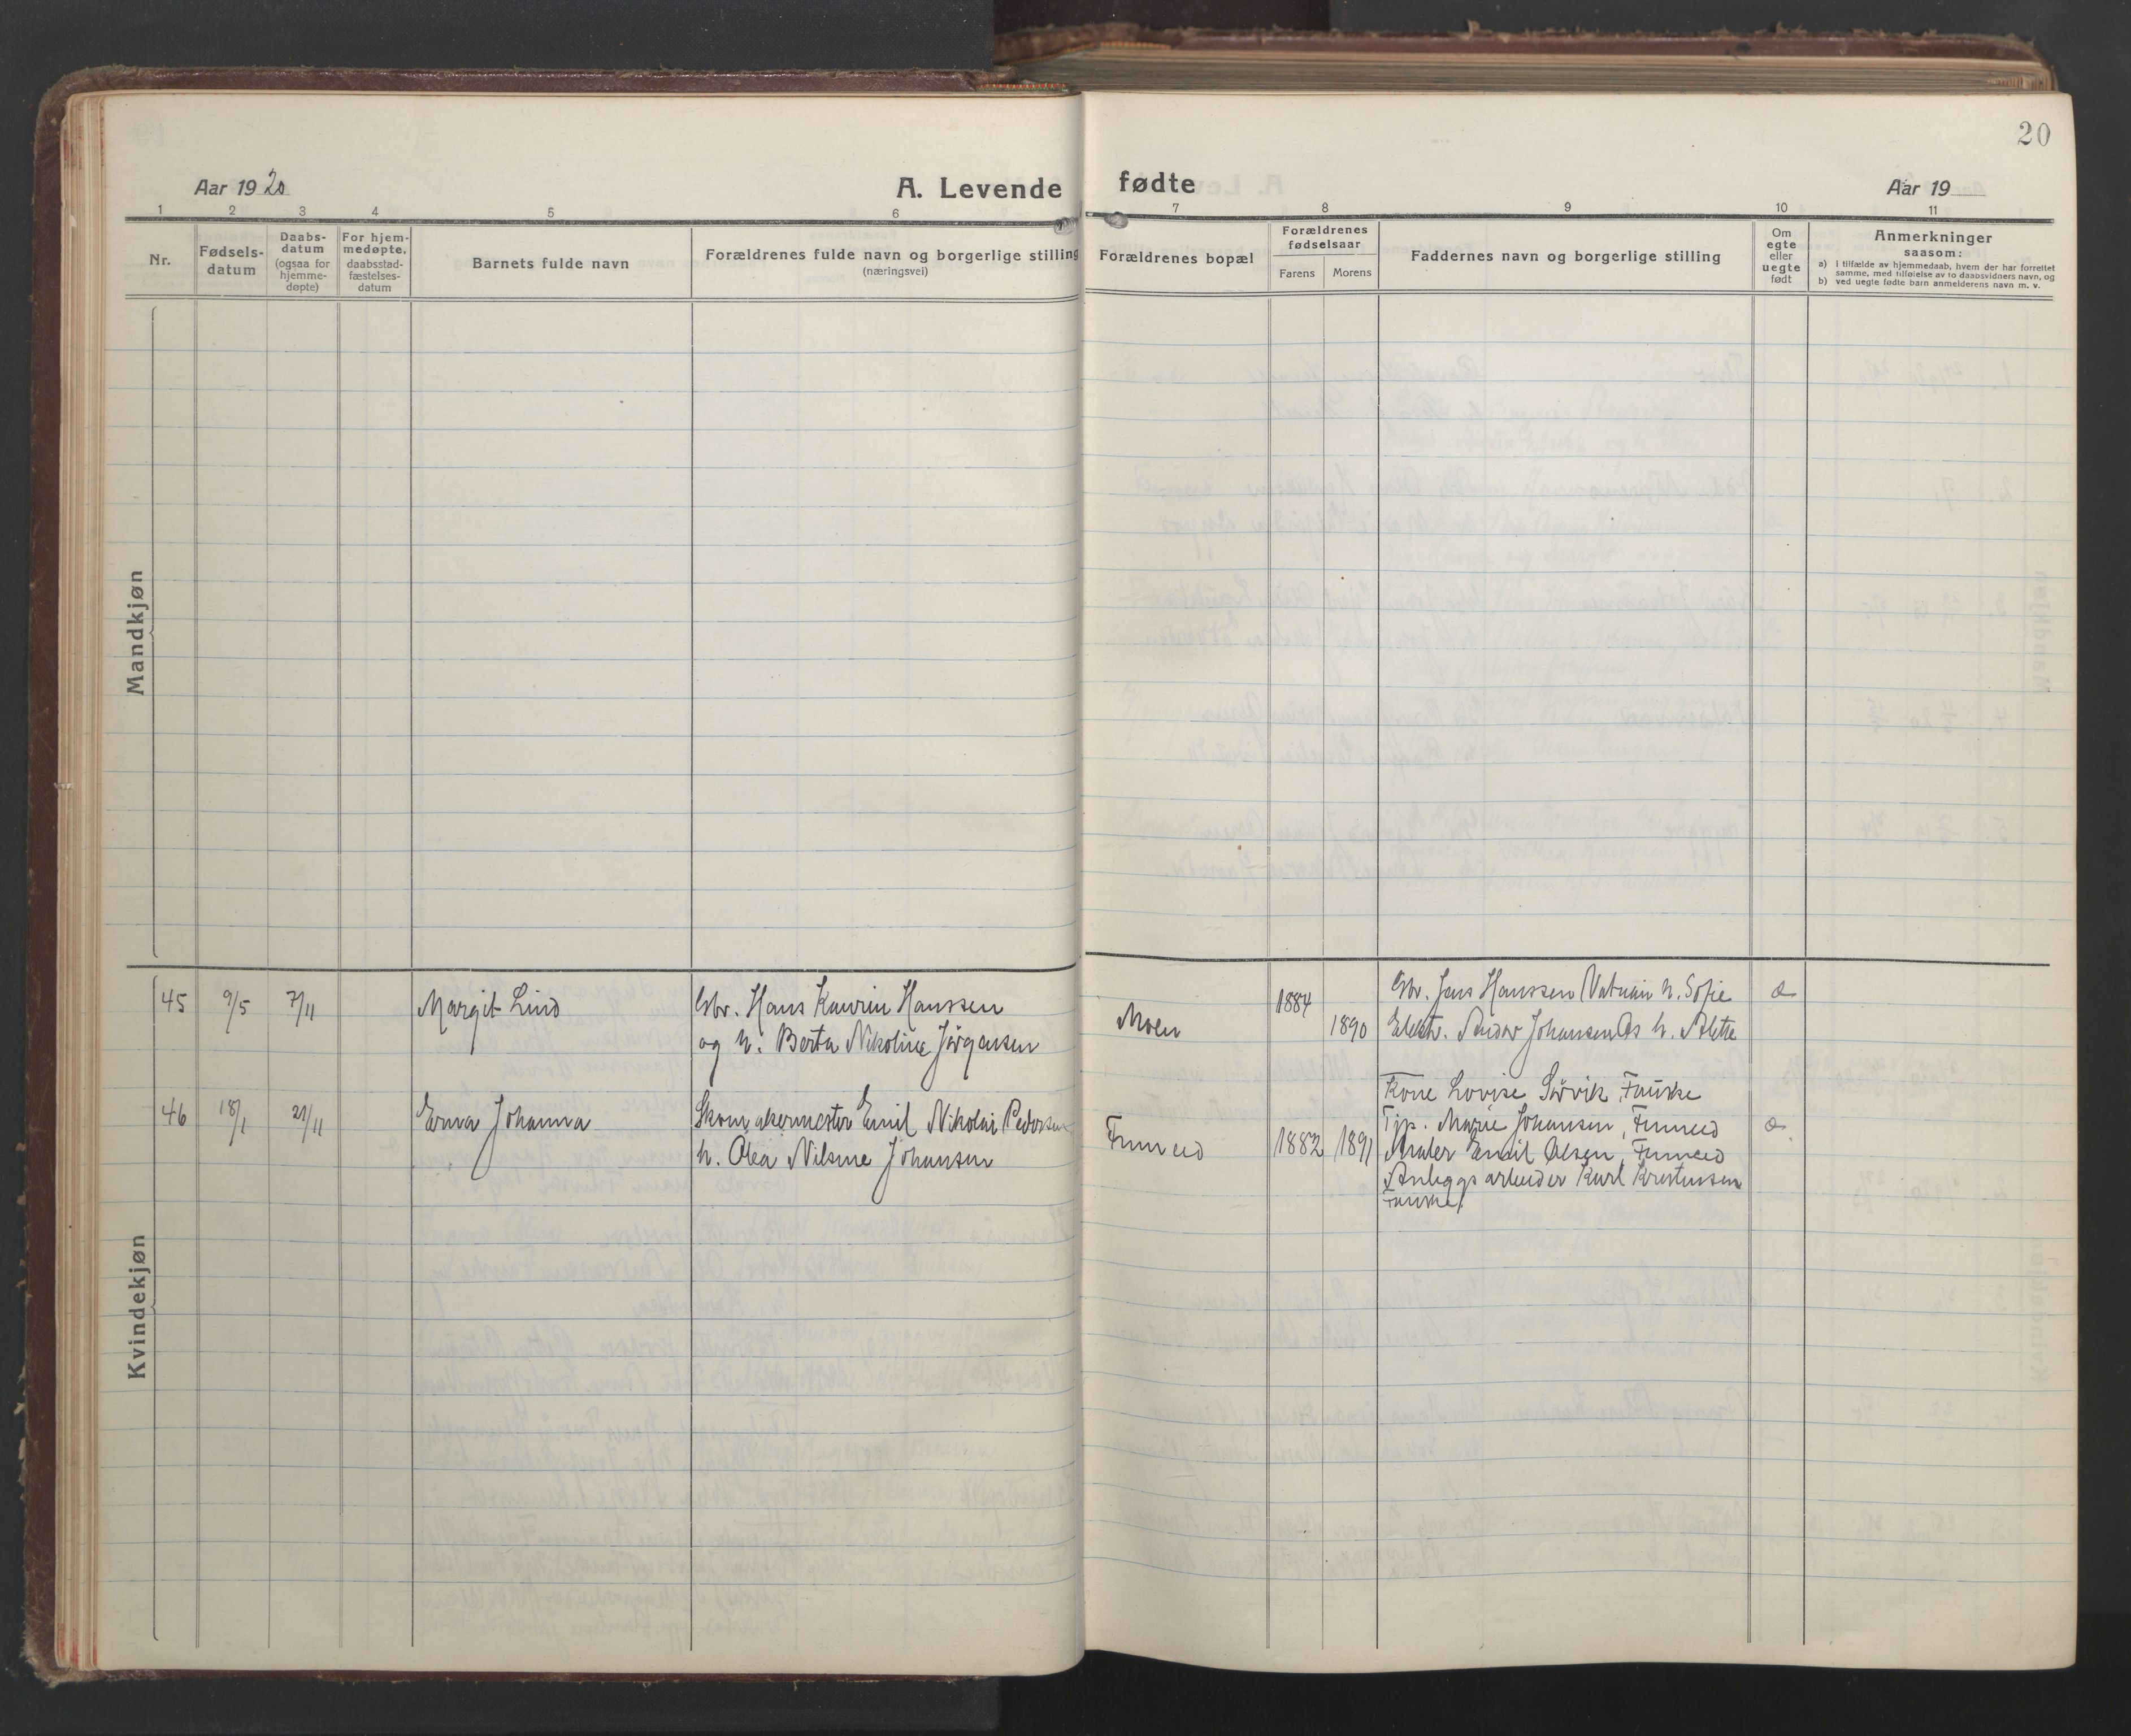 20
Aar 1920
A. Levende fødte
Aar 19
1 2 3 4 5 6 7 8 9 10 11
Nr.
Fødsels-
datum
Daabs-
datum
(ogsaa for
hjemme-
døpte)
For hjem-
medøpte.
daabsstad-
fæstelses-
datum
Barnets fulde navn
Forældrenes fulde navn og borgerlige stilling
(næringsvei)
Forældrenes bopæl
Forældrenes
fødselsaar
Farens Morens
Faddernes navn og borgerlige stilling
Om
egte
eller
uegte
født
Anmerkninger
saasom:
a) i tilfælde av hjemmedaab, hvem der har forrettet
samme, med tilføielse av to daabsvidners navn, og
b) ved uegte fødte barn anmelderens navn m. v.
Mandkjøn
Kvindekjøn
45 9/5 7/11 Margit Lind
Gbr. Hans Kaurin Hanssen
og h. Berta Nikoline Jørgensen
Moen
1884
1890
Gbr. Jens Hanssen h. Sofie
Elektr. Johansen h. Alette
e
46 18/1 21/11 Erna Johanna
Skomakermester Emil Nikolai Pedersen
h. Olea Nilsine Johansen
Finneid
1882 1891
Kone Lovise Sørvik, Fauske
Tjp. Marie Johansen, Finneid
Maler Emil Olsen, Finneid
Anleggsarbeider Karl Kristensen
Fauske.
e.